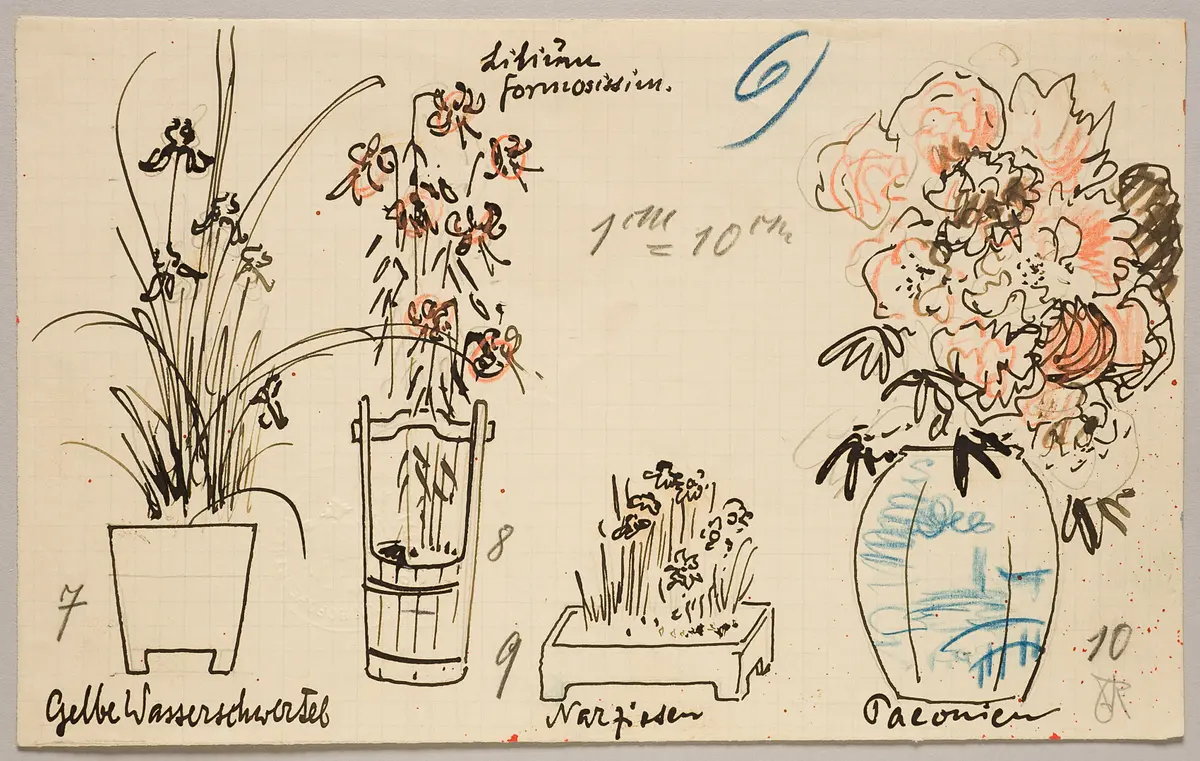 Lilium
formosissim.
6
1cm = 10cm
7
8
9
10
Gelbe Wasserschwertel
Narzissen
Paeonien